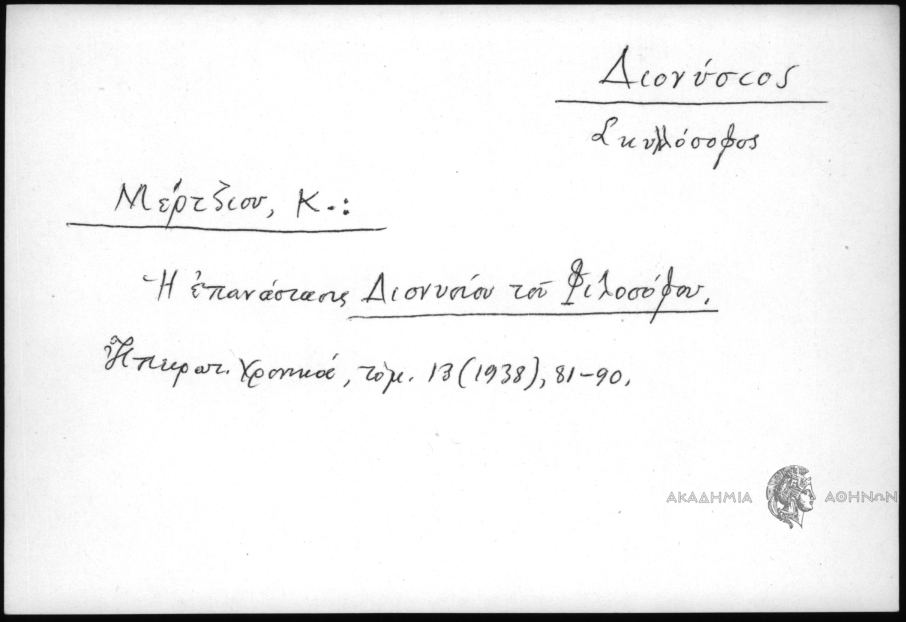 Διονύσιος
Σκυλλόσοφος
Μέρτζιου, Κ.:
Ἡ ἐπανάστασις Διονυσίου τοῦ Φιλοσόφου.
Ἠπειρωτ. Χρονικά, τόμ. 13 (1938), 81-90.
ΑΚΑΔΗΜΙΑ ΑΘΗΝΩΝ